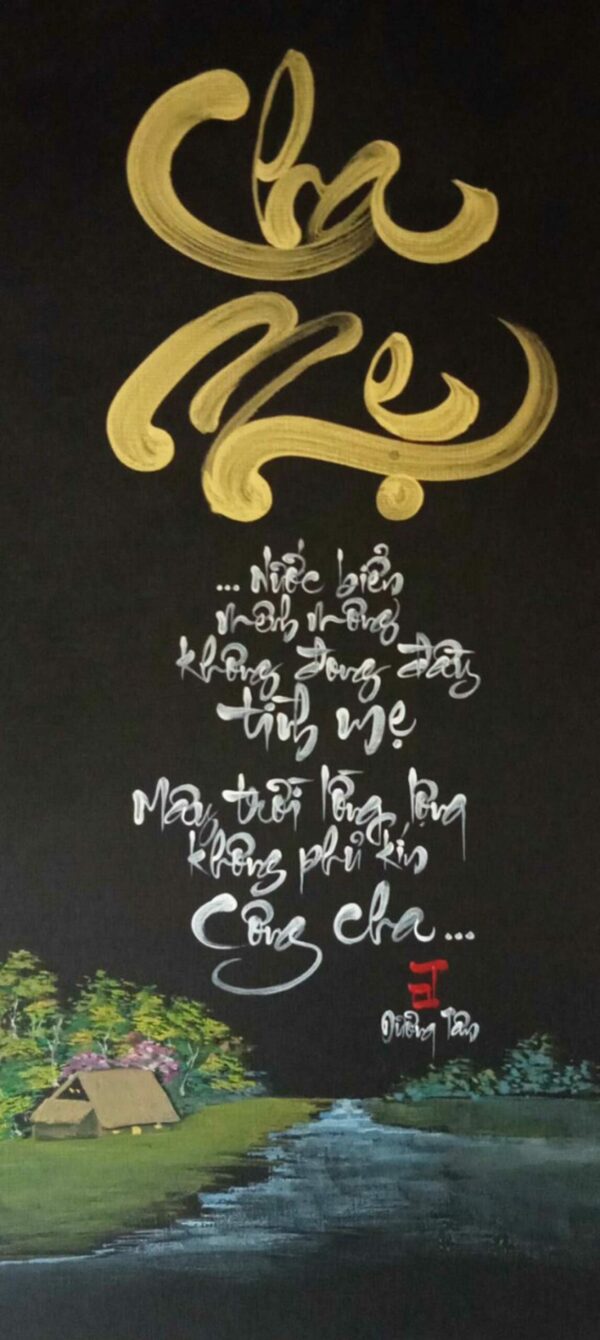 Cha
Mẹ
... Nước biển
mênh mông
không đong đầy
tình mẹ
Mây trời lồng lộng
không phủ kín
Công cha ...
Dưỡng Tâm